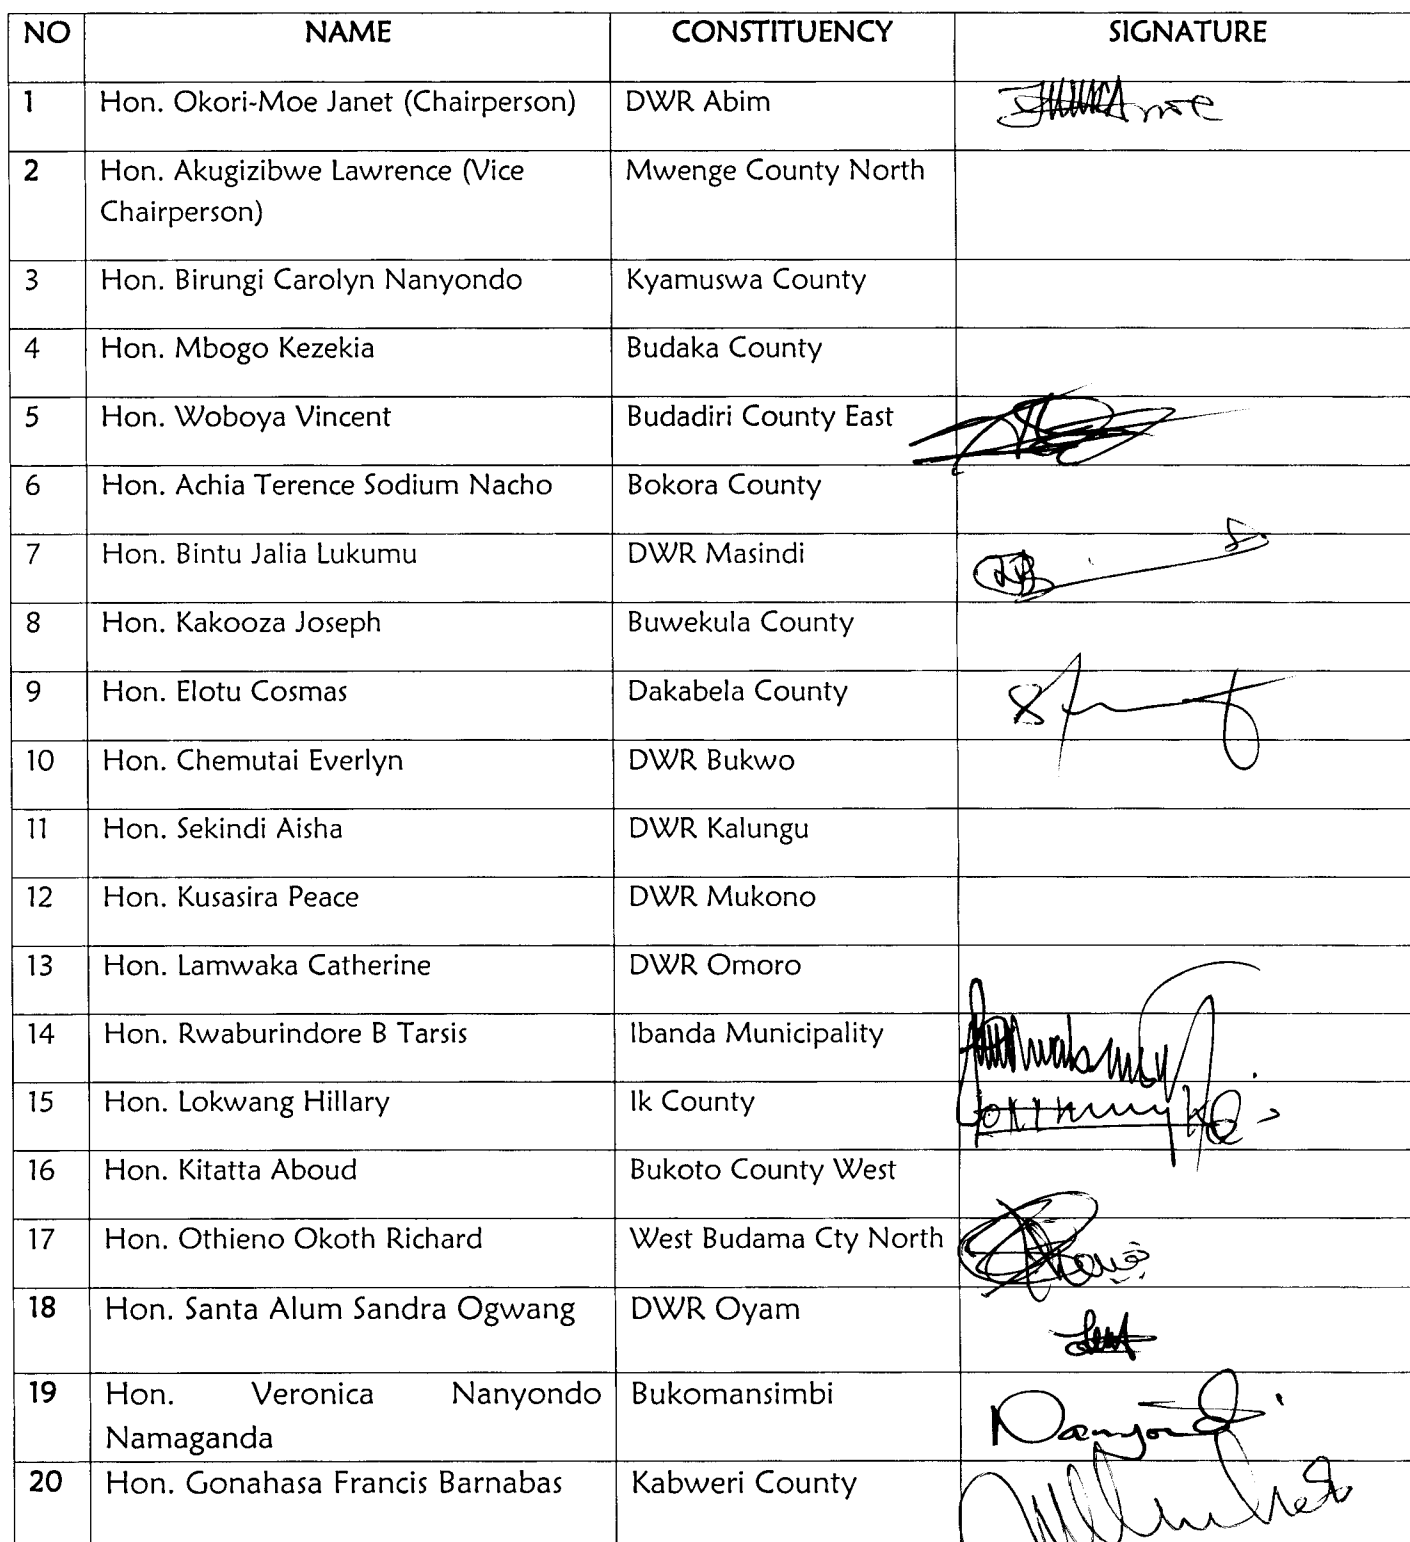 NO NAME CONSTITUENCY SIGNATURE
1 Hon. Okori-Moe Janet (Chairperson) DWR Abim
2 Hon. Akugizibwe Lawrence (Vice Mwenge County North
Chairperson)
3 Hon. Birungi Carolyn Nanyondo Kyamuswa County
4 Hon. Mbogo Kezekia Budaka County
5 Hon. Woboya Vincent Budadiri County East
6 Hon. Achia Terence Sodium Nacho Bokora County
7 Hon. Bintu Jalia Lukumu DWR Masindi
8 Hon. Kakooza Joseph Buwekula County
9 Hon. Elotu Cosmas Dakabela County
10 Hon. Chemutai Everlyn DWR Bukwo
11 Hon. Sekindi Aisha DWR Kalungu
12 Hon. Kusasira Peace DWR Mukono
13 Hon. Lamwaka Catherine DWR Omoro
14 Hon. Rwaburindore B Tarsis Ibanda Municipality
15 Hon. Lokwang Hillary Ik County
16 Hon. Kitatta Aboud Bukoto County West
17 Hon. Othieno Okoth Richard West Budama Cty North
18 Hon. Santa Alum Sandra Ogwang DWR Oyam
19 Hon. Veronica Nanyondo Bukomansimbi
Namaganda
20 Hon. Gonahasa Francis Barnabas Kabweri County